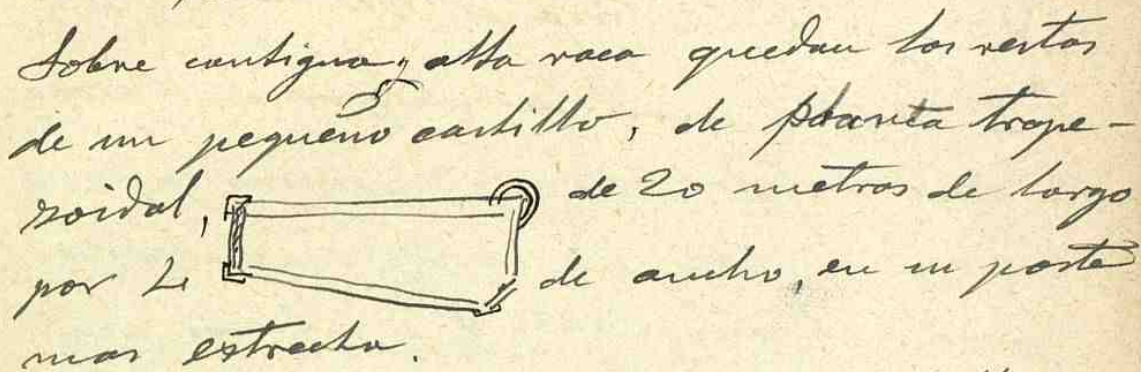 Sobre contigua y alta roca quedan los restos
de un pequeño castillo, de planta trape-
zoidal, de 20 metros de largo
por de ancho, en su parte
mas estrecha.